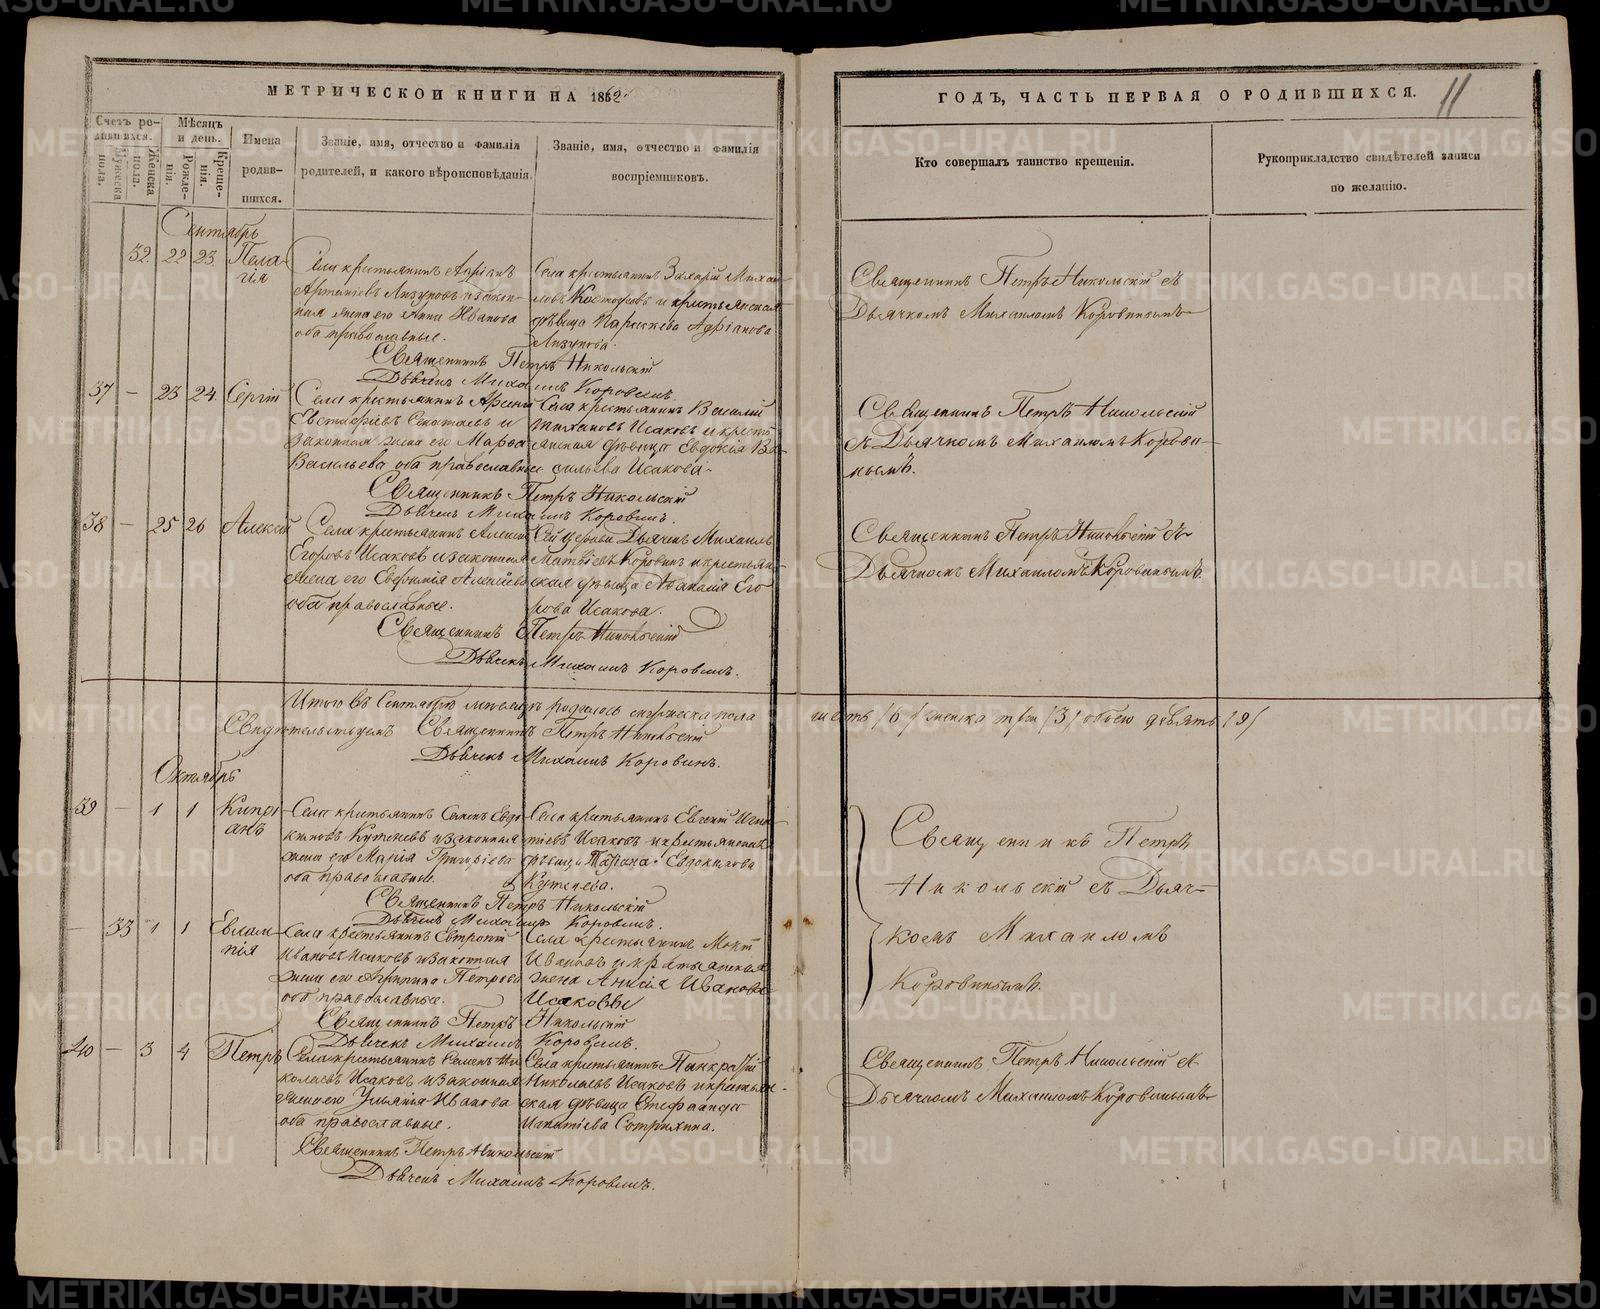 МЕТРИЧЕСКОЙ КНИГИ НА 1862
Счетъ родившихся.
Мужеска пола.
Женска пола.
Мѣсяцъ и день.
Рожденія.
Крещенія.
Имена родившихся.
Званіе, имя, отчество и фамилія родителей, и какого вѣроисповѣданія.
Званіе, имя, отчество и фамилія воспріемниковъ.
Сентябрь
32. 22 23. Пелагія
Села крестьянинъ Адріанъ
Лизуновъ и законная жена его Анна Иванова
оба православные.
Села крестьянинъ Захарій Михайловъ
и крестьянская
дѣвица Параскева Адріанова
Лизунова.
Священникъ Петръ Никольскій
Дьячекъ Михаилъ Коровинъ.
37 – 23 24. Сергій
Села крестьянинъ Арсеній
Евстафіевъ и
законная жена его Марѳа
Васильева оба православные
Села крестьянинъ Василій
Тихановъ Исаковъ и крестьянская дѣвица Евдокія Васильева Исакова.
Священникъ Петръ Никольскій
Дьячекъ Михаилъ Коровинъ.
38 – 25 26 Алексій
Села крестьянинъ Алексій
Егоровъ Исаковъ и законная
жена его Евфимія Алексѣева
оба православные.
Сей церкви Дьячекъ Михаилъ
Матвіевъ Коровинъ и крестьянская дѣвица Аѳанасія Егорова Исакова.
Священникъ Петръ Никольскій
Дьячекъ Михаилъ Коровинъ.
Итого въ Сентябрѣ мѣсяцѣ родилось мужеска пола
шесть /6/ женска три /3/ обоего девять /9/
Свидѣтельствуемъ Священникъ Петръ Никольскій
Дьячекъ Михаилъ Коровинъ.
Октябрь
39 – 1 1 Кипріанъ
Села крестьянинъ Семенъ Евдокимовъ Кутеневъ и законная
жена его Марія Григорьева
оба православные.
Села крестьянинъ Евгеній Игнатіевъ Исаковъ и крестьянская
дѣвица Татіана Евдокимова
Кутенева.
Священникъ Петръ Никольскій
Дьячекъ Михаилъ Коровинъ.
– 33 1 1 Евлампія
Села крестьянинъ Евтропій
Ивановъ Исаковъ и законная
жена его Агрипина Петрова
оба православные.
Села крестьянинъ Мокій
Ивановъ и крестьянская
жена Анисія Иванова
Исаковы
Священникъ Петръ Никольскій
Дьячекъ Михаилъ Коровинъ.
40 – 3 4 Петръ
Села крестьянинъ Семенъ Николаевъ Исаковъ и законная
жена его Ульянія Иванова
оба православные.
Села крестьянинъ Панкратій
Николаевъ Исаковъ и крестьянская дѣвица Стефанида
Игнатіева
Священникъ Петръ Никольскій
Дьячекъ Михаилъ Коровинъ.
ГОДЪ, ЧАСТЬ ПЕРВАЯ О РОДИВШИХСЯ.
11
Кто совершалъ таинство крещенія.
Рукоприкладство свидѣтелей записи по желанію.
Священникъ Петръ Никольскій съ
Дьячкомъ Михаиломъ Коровинымъ
Священникъ Петръ Никольскій
съ Дьячкомъ Михаиломъ Коровинымъ.
Священникъ Петръ Никольскій съ
Дьячкомъ Михаиломъ Коровинымъ.
Священникъ Петръ
Никольскій съ Дьячкомъ Михаиломъ
Коровинымъ.
Священникъ Петръ Никольскій съ
Дьячкомъ Михаиломъ Коровинымъ
METRIKI.GASO-URAL.RU